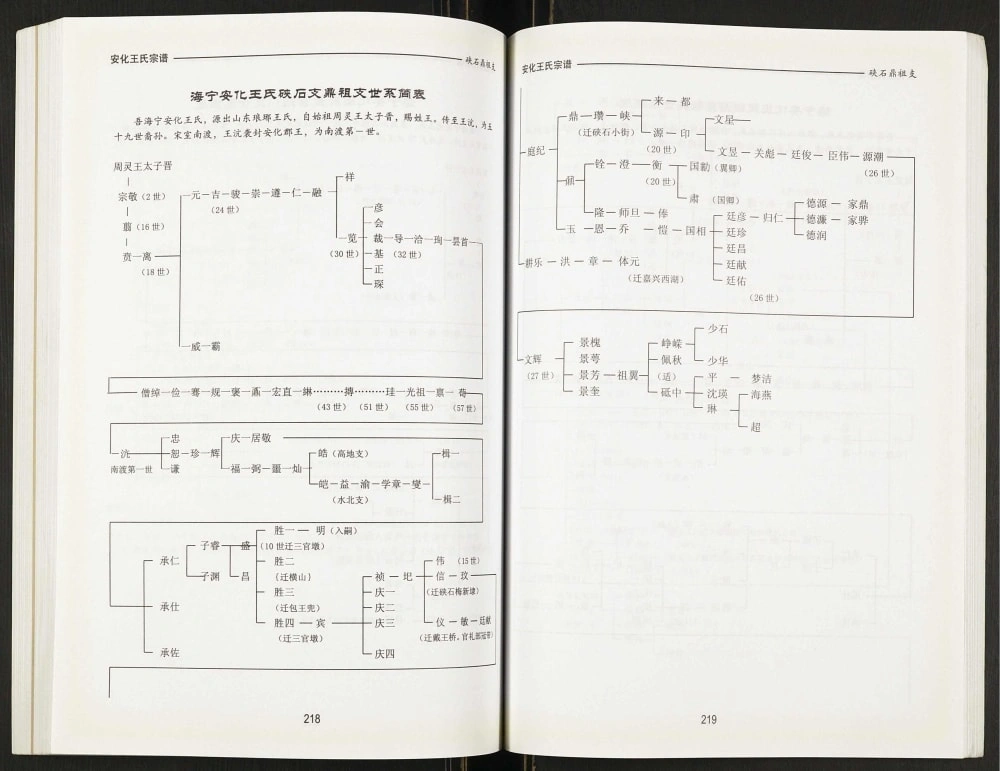 安化王氏宗谱
硖石鼎祖支
海宁安化王氏硖石支鼎祖支世系简表
吾海宁安化王氏，源出山东琅琊王氏，自始祖周灵王太子晋，赐姓王。传至王沇，为五
十九世裔孙。宋室南渡，王沇袭封安化郡王，为南渡第一世。
周灵王太子晋
宗敬（2世）
翦（16世）
贲一离
（18世）
元一吉一骏一崇一遵一仁一融
（24世）
样
览
（30世）
彦
会
裁一导一洽一珣一昙首
（32世）
基
正
琛
威一霸
僧绰一俭一骞一规一褒一鼒一宏直一綝………搏………珪一光祖一禀一荀
（43世）（51世）（55世）（57世）
沇
南渡第一世
忠
恕一珍一辉
谦
庆一居敬
福一弼一噩一灿
皓（高地支）
皑一益一渝一学章一燮
（水北支）
楫一
楫二
承仁
承仕
承佐
子睿
子渊
盛
昌
胜一一明（入嗣）
（10世迁三官墩）
胜二
（迁横山）
胜三
（迁包王兜）
胜四一宾
（迁三官墩）
祯一圯
庆一
庆二
庆三
庆四
伟（15世）
信一玟
（迁硖石梅新埭）
仪一敏一廷献
（迁戴王桥。官礼部冠带）
218
安化王氏宗谱
硖石鼎祖支
庭纪
鼎一瓒一峡
（迁硖石小街）
来一都
源一印
（20世）
文星
文昱一关彪一廷俊一臣伟一源潮
（26世）
鼐
铨一澄一衡
（20世）
国勷（翼卿）
肃（国卿）
隆一师旦一俸
玉一恩一乔一恺一国相
廷彦一归仁
廷珍
廷昌
廷献
廷佑
（26世）
德源一家鼎
德濂一家骅
德润
耕乐一洪一章一体元
（迁嘉兴西湖）
文辉
（27世）
景槐
景萼
景芳一祖翼
景奎
峥嵘
佩秋
（适）
砥中
少石
少华
平一梦洁
沈瑛
琳
海燕
超
219